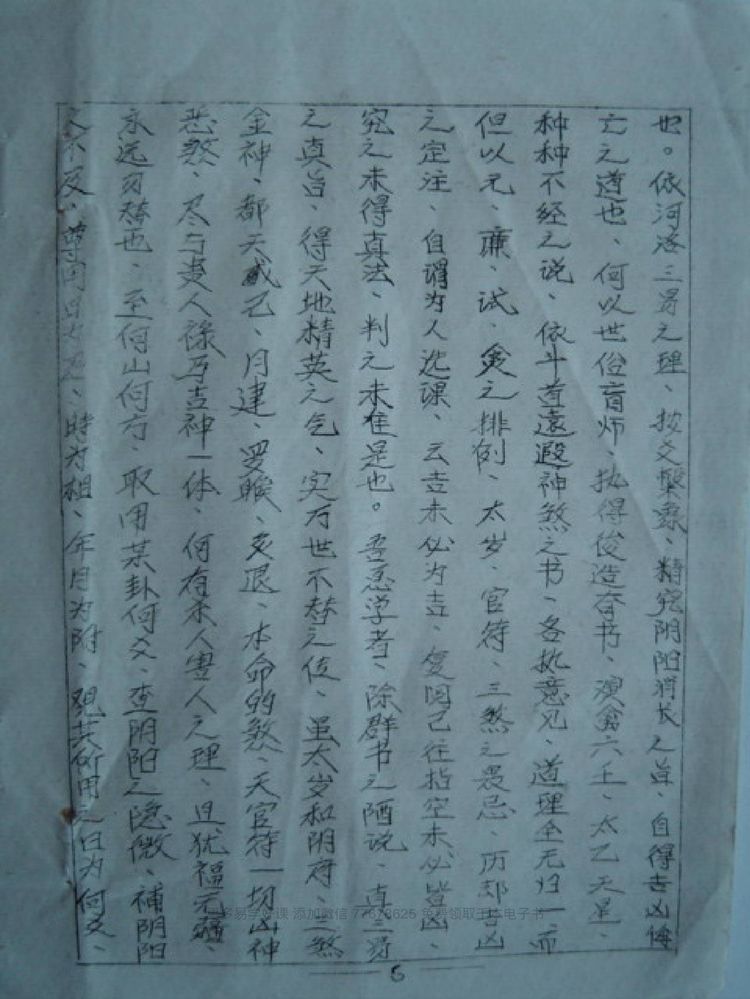 也。依河洛三易之理、按爻繫彖、精究阴阳消长之旨、自得吉凶悔
亡之道也、何以世俗盲师、执得俊造奇书、演禽六壬、太乙天星、
种种不经之说、依斗首遠遐神煞之书、各执意见、道理全无归一、而
但以元、廉、武、贪之排例、太岁、官符、三煞之畏忌、历却吉凶
之定注、自谓为人造课、云吉未必为吉、复因己往指空未必皆凶、
究之未得真法、判之未准是也。吾愿学者、除群书之陋说、真三易
之真旨、得天地精英之气、实万世不替之位、虽太岁和阴府、三煞
金神、都天戊己、月建、罗睺、炙退、本命的煞、天官符一切凶神
恶煞、尽与贵人禄马吉神一体、何有杀人害人之理、且犹福元
永远勿替也、至何山何方、取用某卦何爻、查阴阳之隐微、補阴阳
之不及、尊用日为君、時为相、年月为附、观其所用之日为何爻、
多易学好课 添加微信 77678625 免费领取王挂电子书
6